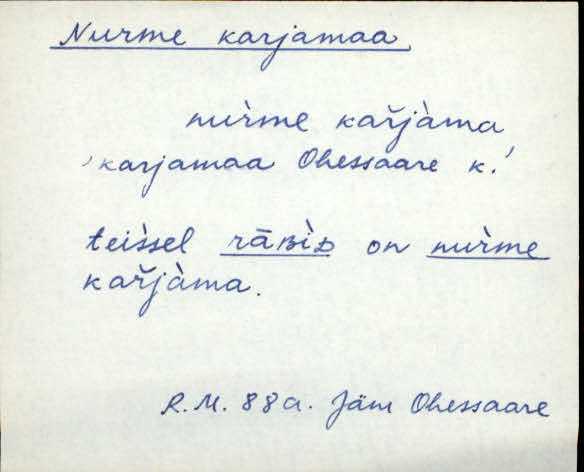 Nurme karjamaa
nur̀me kařjàma
'karjamaa Ohessaare k.'
teìssel rāʙìᴅ on nur̀me
kařjàma.
R.M. 88a. Jäm Ohessaare